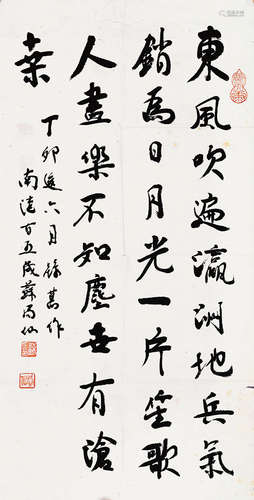 東風吹遍瀛洲地兵氣
銷爲日月光一片笙歌
人盡樂不知塵世有滄
桒
丁卯閏六月錄舊作
南滙百五歲蘇局仙